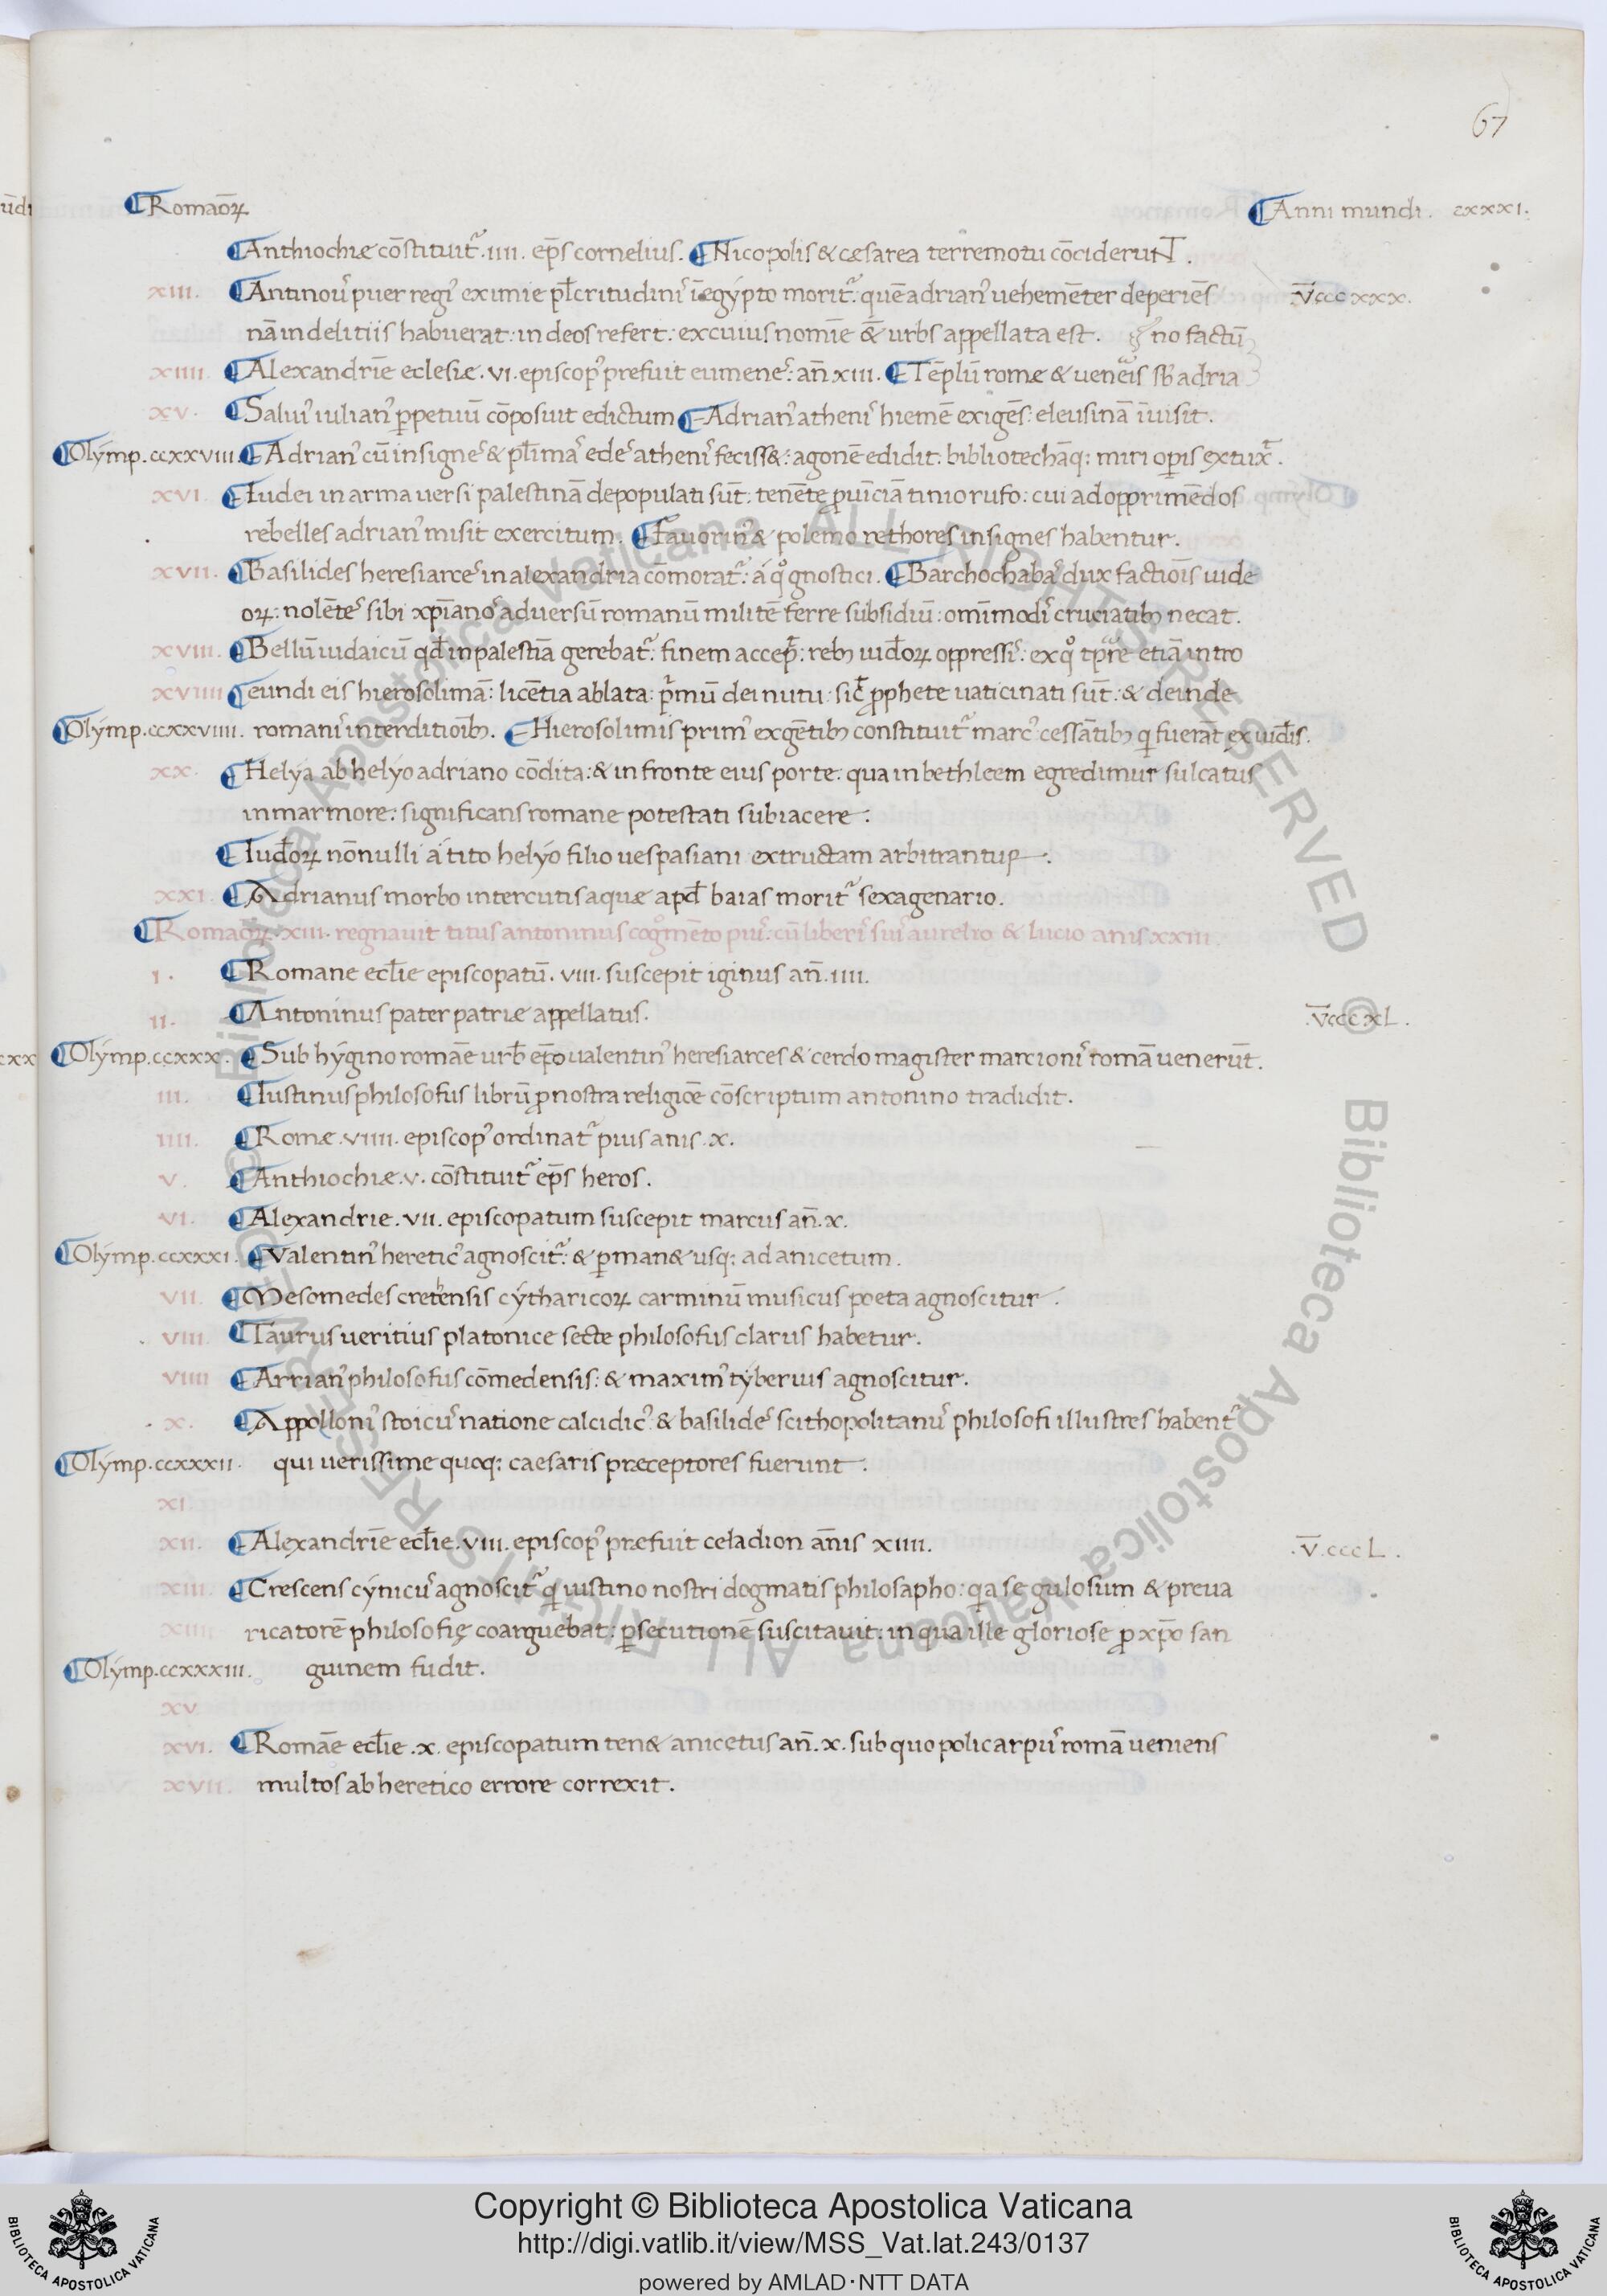 67
Romaōꝝ Anni mundi. cxxxi.
Anthiochiæ cōstituit᷑ .iiii. ep̄s cornelius. Nicopolis & cæsarea terremotu cōciderunt.
xiii. Antinoꝰ puer regiꝰ eximie pl̄critudinis īegýpto morit᷑: quē adrianꝰ uehemēter deperiēs .v̄ccc xxx.
nā in delitiis habuerat: in deos refert: ex cuius nomīe & urbs appellata est. no factū
xiiii. Alexandrīe eclesiæ .vi. episcopꝰ prefuit eumenes: an̄ xiii. Tēplū romæ & uenēis sb̄ adria
xv. Saluiꝰ iulianꝰ ꝑpetuū cōposuit edictum Adrianꝰ athenis hiemē exigēs: eleusinā īuisit.
Olýmp. ccxxviii. Adrianꝰ cū insignes & pl̄imas edes athenis feciss&: agonē edidit: bibliotechāq; miri oꝑis extux̄.
xvi. Iudei in arma uersi palestinā depopulati sūt: tenēte ꝓuīciā tinio rufo: cui ad opprimēdos
rebelles adrianꝰ misit exercitum. Fauorinꝰ & polemo rethores insignes habentur.
xvii. Basilides heresiarces in alexandria cōmorat᷑: á qͦ gnostici. Barchochabas dux factiōis iude
oꝝ: nolētes sibi xp̄ianos aduersū romanū militē ferre subsidiū: omīmodis cruciatib; necat.
xviii. Bellū iudaicū qd̄ in palestīa gerebat᷑: finem accep̄: reb; iud̄oꝝ oppressis: ex qͦ tp̄re etiā intro
xviiii eundi eis hierosolimā: licētia ablata: pͥmū dei nutu: sic̄ ꝓphete uaticinati sūt: & deinde
Olýmp. ccxxviiii. romanis interditiōib;. Hierosolimis primꝰ ex gētib; constituit᷑ marcꝰ cessātib; q fuerāt ex iud̄is.
xx. Helýa ab helýo adriano cōdita: & in fronte eius porte: qua in bethleem egredimur sulcatus
in marmore: significans romane potestati subiacere.
Iud̄oꝝ nōnulli á tito helýo filio uespasiani extructam arbitrantur.
xxi. Adrianus morbo intercutis aquæ apd̄ baias morit᷑ sexagenario.
Romaoꝝ .xiii. regnauit titus antoninus cogmēto piuꝰ: cū liberis suis aurelio & lucio anis xxiii.
i. Romane ecl̄ie episcopatū .viii. suscepit iginus an̄. iiii.
ii. Antoninus pater patriæ appellatus. .v̄ccc xL.
Olýmp. ccxxx. Sub hýgino romāe urb̄ ep̄o ualentinꝰ heresiarces & cerdo magister marcionis romā uenerūt.
iii. Iustinus philosofus librū ꝓ nostra religiōe cōscriptum antonino tradidit.
iiii. Romæ .viiii. episcopꝰ ordinat᷑ pius anis .x.
v. Anthiochiæ .v. cōstituit᷑ ep̄s heros.
vi. Alexandrie .vii. episcopatum suscepit marcus an̄. x.
Olýmp. ccxxxi. Valentinꝰ hereticꝰ agnoscit᷑: & ꝑman& usq; ad anicetum.
vii. Mesomedes cretensis cýtharicoꝝ carminū musicus poeta agnoscitur.
viii. Taurus ueritius platonice secte philosofus clarus habetur.
viiii Arrianꝰ philosofus cōmedensis: & maximꝰ týberius agnoscitur.
x. Appollonꝰ stoicus natione calcidicꝰ & basilides scithopolitanus philosofi illustres habent᷑
Olýmp. ccxxxii. qui uerissime quoq; caesaris præceptores fuerunt.
xi.
xii. Alexandrīe ecl̄ie .viii. episcopꝰ præfuit celadion an̄is xiiii. .v̄.cccL.
xiii. Crescens cýnicus agnoscit᷑ q iustino nostri dogmatis philosapho: qa se gulosum & preua
xiiii. ricatorē philosofię coarguebat: ꝑsecutionē suscitauit: in qua ille gloriose ꝓ xp̄o san
Olýmp. ccxxxiii. guinem fudit.
xv
xvi. Romāe ecl̄ie .x. episcopatum ten& anicetus an̄. x. sub quo policarpus romā ueniens
xvii. multos ab heretico errore correxit.
Copyright © Biblioteca Apostolica Vaticana
http://digi.vatlib.it/view/MSS_Vat.lat.243/0137
powered by AMLAD·NTT DATA